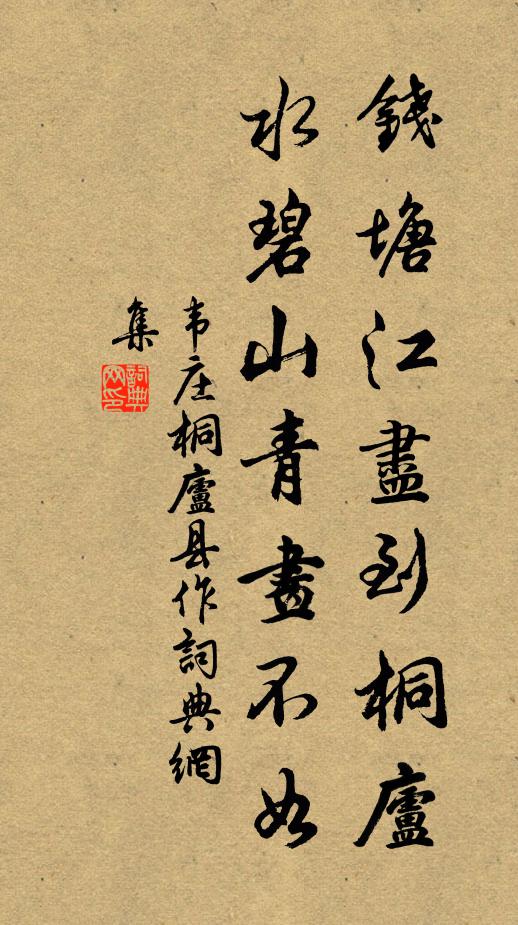 錢塘江盡到桐廬
水碧山青畫不如
韦庄桐廬县作詞典網
集
詞典網印